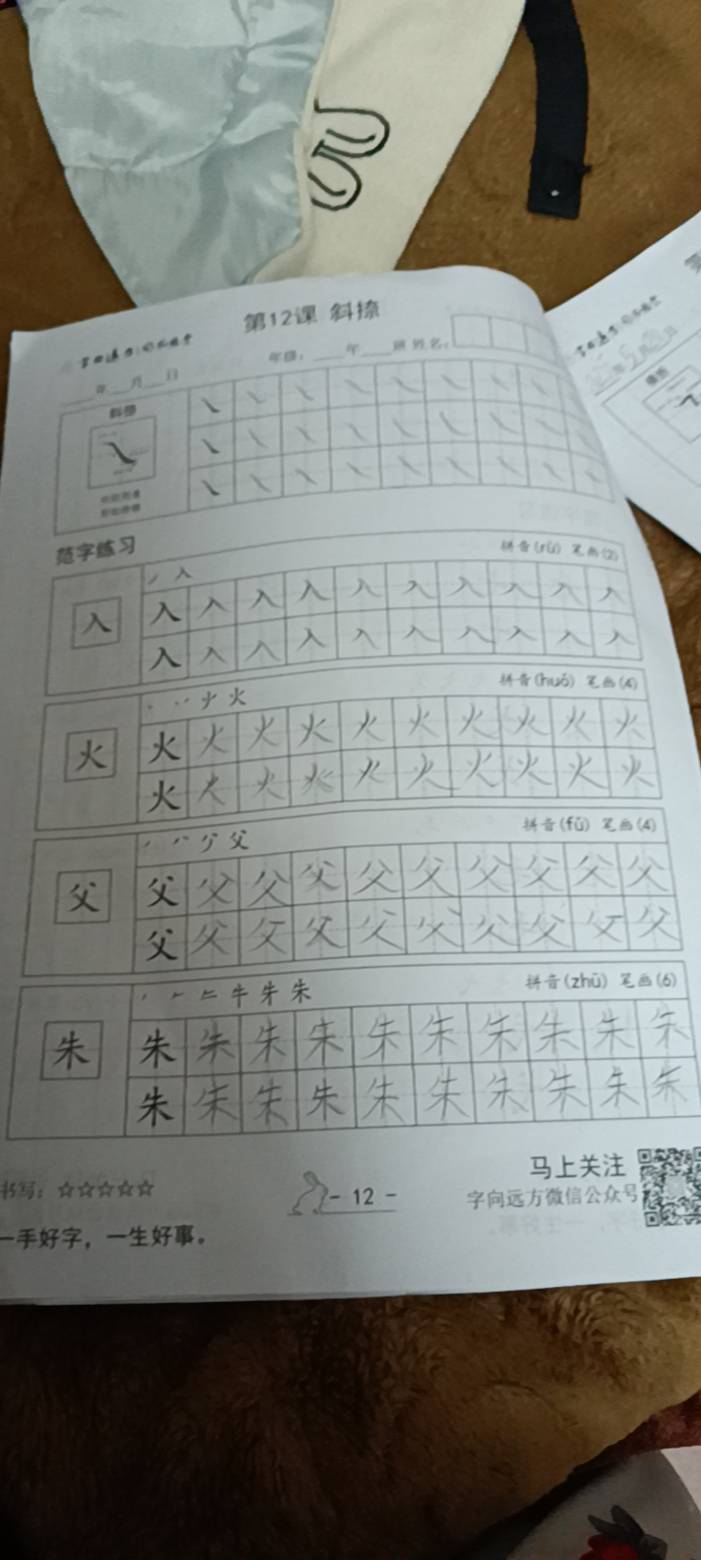 第12课 斜捺
年级：____年____班 姓名：
____年___月___日
斜捺
范字练习
拼音(rù) 笔画(2)
丿 入
入 入 入 入 入 入 入 入 入 入 入
入 入 入 入 入 入 入 入 入 入
拼音(huǒ) 笔画(4)
火
火 火 火 火 火 火 火 火 火 火 火
火 火 火 火 火 火 火 火 火 火
拼音(fù) 笔画(4)
父
父 父 父 父 父 父 父 父 父 父 父
父 父 父 父 父 父 父 父 父 父
拼音(zhū) 笔画(6)
丿 𠂉 牛 朱
朱 朱 朱 朱 朱 朱 朱 朱 朱 朱 朱
朱 朱 朱 朱 朱 朱 朱 朱 朱 朱
书写：☆☆☆☆☆
一手好字，一生好事。
- 12 -
马上关注
字向远方微信公众号